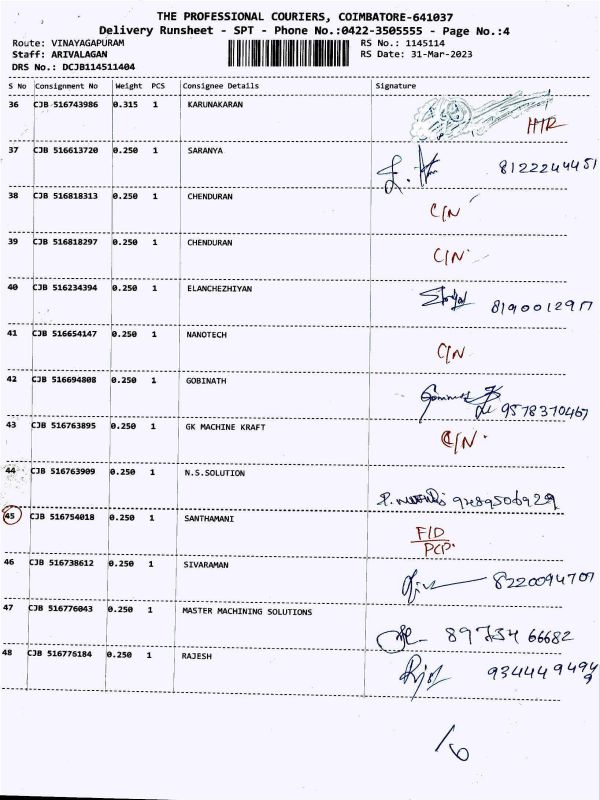 THE PROFESSIONAL COURIERS, COIMBATORE-641037
Delivery Runsheet - SPT - Phone No.:0422-3505555 - Page No.:4
Route: VINAYAGAPURAM RS No.: 1145114
Staff: ARIVALAGAN RS Date: 31-Mar-2023
DRS No.: DCJB114511404
S No Consignment No Weight PCS Consignee Details Signature
36 CJB 516743986 0.315 1 KARUNAKARAN
37 CJB 516613720 0.250 1 SARANYA 8122244451
38 CJB 516818313 0.250 1 CHENDURAN C/N
39 CJB 516818297 0.250 1 CHENDURAN C/N
40 CJB 516234394 0.250 1 ELANCHEZHIYAN 8190012917
41 CJB 516654147 0.250 1 NANOTECH C/N
42 CJB 516694808 0.250 1 GOBINATH 9578370467
43 CJB 516763895 0.250 1 GK MACHINE KRAFT C/N
44 CJB 516763909 0.250 1 N.S.SOLUTION
45 CJB 516754018 0.250 1 SANTHAMANI F/D
PCP.
46 CJB 516738612 0.250 1 SIVARAMAN 8220094707
47 CJB 516776043 0.250 1 MASTER MACHINING SOLUTIONS 89734 66682
48 CJB 516776184 0.250 1 RAJESH 9344494949